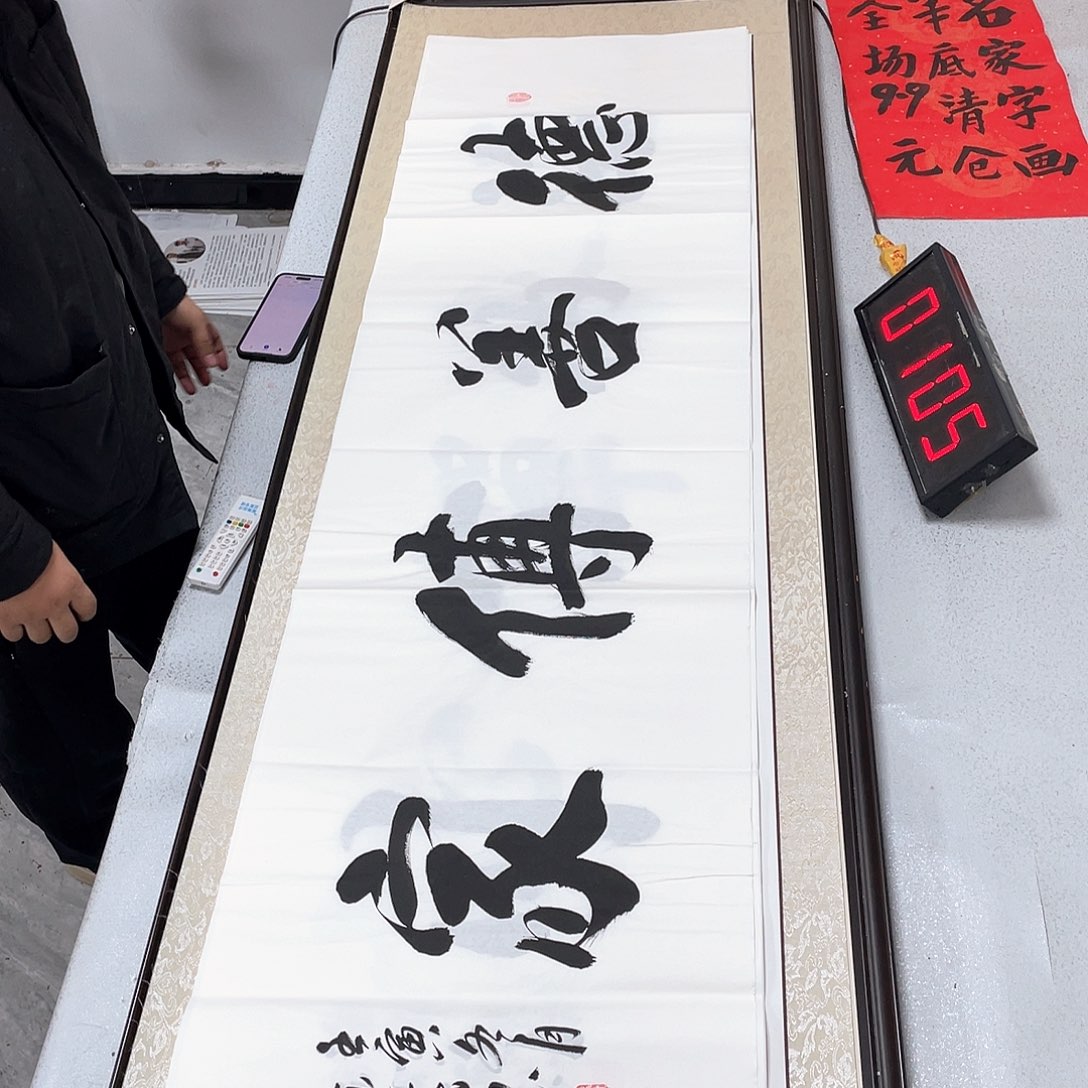 德善傳家
名家字画
年底清仓
全场9.9元
0105